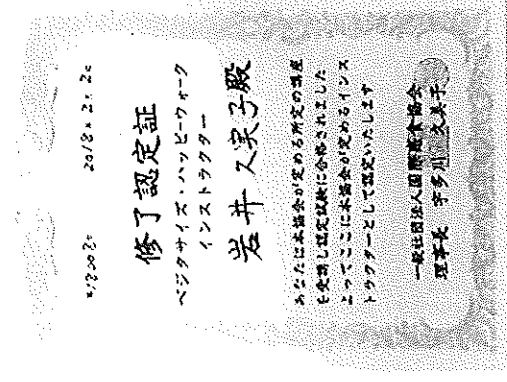 修了認定証
ベジタサイズ・ハッピーウォーク
インストラクター
岩井 久実子殿
あなたは本協会が定める所定の講座
を受講し認定試験に合格されました
よってここに本協会が定めるインス
トラクターとして認定いたします
一般社団法人国際蘇食協会
理事長 宇多川 久美子